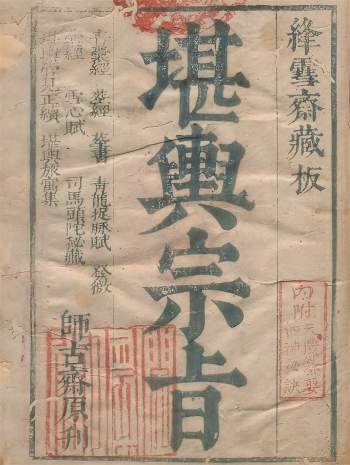 絳雪齋藏板
堪輿宗旨
青囊經 葬經 葬書 青龍捉脉賦 發微
經 雪心賦 司馬頭陀秘藏
正續 堪輿 集
師古齋原刋
内附天